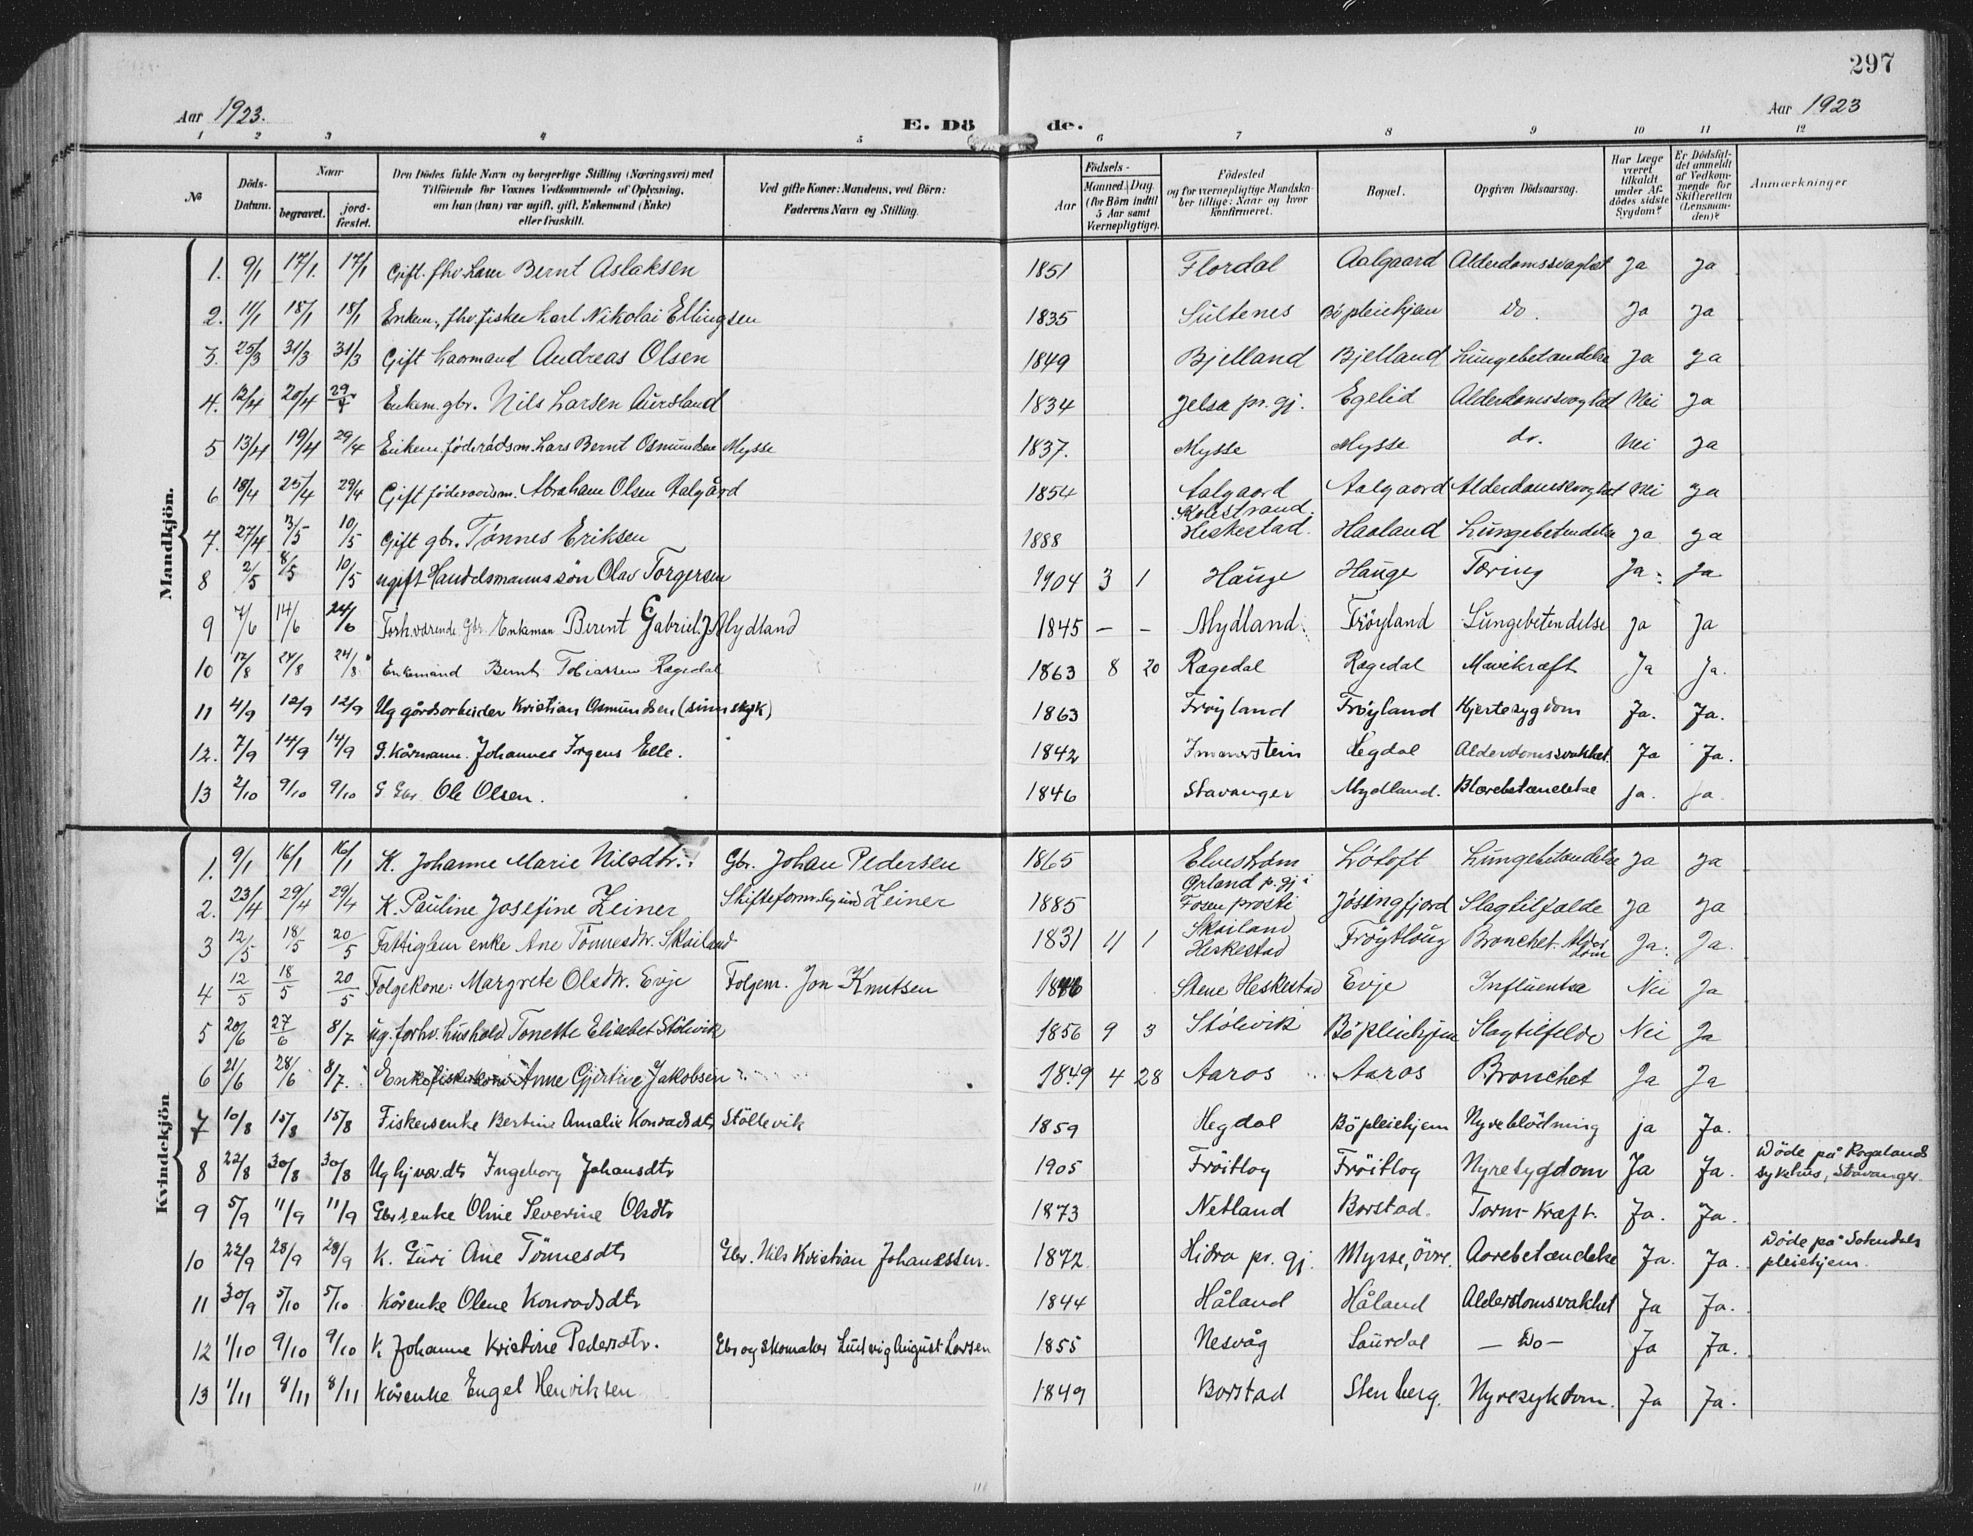 297
Aar 1923. E. Dö de. Aar 1923
1 2 3 4 5 6 7 8 9 10 11 12
№ Döds-Datum. Naar begravet. jordfæstet. Den Dödes fulde Navn og borgerlige Stilling (Næringsvei) med Tilföiende for Voxnes Vedkommende af Oplysning, om han (hun) var ugift, gift, Enkemand (Enke) eller fraskilt. Ved gifte Koner: Mandens, ved Börn: Faderens Navn og Stilling. Födsels- Aar Maaned. Dag (for Börn indtil 5 Aar samt Værnepligtige). Födested og for værnepligtige Mandskaber tillige: Naar og hvor konfirmeret. Bopæl. Opgiven Dödsaarsag. Har Læge været tilkaldt under Afdödes sidste Sygdom? Er Dödsfaldet anmeldt af Vedkommende for Skifteretten (Lensmanden)? Anmærkninger
Mandkjön.
1. 9/1 17/1. 17/1 Gift. fhv. Bernt Aslaksen 1851 Flordal Aalgaard Alderdomssvaghet Ja Ja
2. 11/1 18/1 18/1 Enkem, fhv. fisker Karl Nikolai Ellingsen 1835 Sultenes Bö pleiehjem Do. Ja Ja
3. 25/3 31/3 31/3 Gift Kaarmand Andreas Olsen 1849 Bjelland Bjelland Lungebetændelse Ja Ja
4. 12/4 20/4 29/4 Enkem. gbr. Nils Larsen Aursland 1834 Jelsa pr.gj. Egelid Alderdomssvaghet Nei Ja
5 13/4 19/4 29/4 Enkem. föderådsm. Lars Bernt Osmundsen Mysse 1837. Mysse Mysse do. Nei Ja
6 18/4 25/4 29/4 Gift föderaadsm. Abraham Olsen Aalgård 1854 Aalgaard Aalgaard Alderdomssvaghet Nei Ja
7. 27/4 3/5 10/5 Gift gbr. Tønnes Eriksen 1888 Kolestrand. Heskestad. Haaland Lungebetendelse Ja Ja
8 2/5 8/5 10/5 ugift Handelsmannssön Olav Torgersen 1904 3 1 Hauge Hauge Tæring Ja. Ja
9 7/6 14/6 24/6 Forhværende Gbr. Enkeman Berent Gabriel. J. Mydland 1845 – – Mydland Frøyland Lungebetendelse Ja Ja
10 17/8 24/8 24/8 Enkemand Bernt Tobiassen Rægedal 1863 8 20 Rægedal Rægedal Mavekræft Ja Ja.
11 4/9 12/9 12/9 Ug gårdsarbeider Kristian Osmundsen (sinnssyk) 1863 Frøyland Frøyland Hjertesygdom Ja. Ja.
12. 7/9 14/9 14/9 G. Kårmann. Johannes Jorgens Elle. 1842 Immerstein Hegdal Alderdomssvakhet. Ja Ja.
13 2/10 9/10 9/10 G. Gbr. Ole Olsen. 1846 Stavanger Mydland. Blærebetændelse ja. ja.
Kvindekjön
1. 9/1 16/1 16/1 K. Johanne Marie Nilsdtr. Gbr. Johan Pedersen 1865 Elvestrøm Lótoft Lungebetændelse Ja Ja
2. 23/4 29/4 29/4 K. Pauline Josefine Zeiner Skifteform. Zeiner 1885 Ørland p.gj i Fosen prosti Jøsingfjord Slagtilfælde Ja Ja
3 12/5 18/5 20/5 Fattiglem enke Ane Tønnesdtr. Skåiland 1831 11 1 Skåiland Heskestad Frøytloug Bronchet. Alderdom Ja. Ja.
4 12/5 18/5 20/5 Folgekone: Margrete Olsdtr. Evje Folgem. Jon Knutsen 1846 Stene Heskestad Evje Influentsa Nei Ja
5 20/6 27/6 8/7 ug. forhv. hushold Tonette Elisebet Stölevik 1856 9 3 Stölevik Bö pleiehjem Slagtilfelde Nei Ja
6 21/6 28/6 8/7. Enke fiskerkone Anne Gjertine Jakobsen 1849 4 28 Aaros Aaros Bronchet Ja Ja
7 10/8 15/8 15/8 Fiskersenke Bertine Amalie Konradsdtr Stöllevik 1859 Hegdal Bö pleiehjem Nyreblödning ja Ja.
8 22/8 30/8 30/8 Ug hjvær. dtr Ingeborg Johansdtr 1905 Fröitlog Fröitlog Nyresygdom Ja Ja. Döde på Rogalands sykehus, Stavanger.
9 5/9 11/9 11/9 Gbrs enke Oline Severine Olsdtr 1873 Netland Borstad. Tarm-kræft. Ja. Ja.
10 22/9 28/9 28/9 K. Guri Ane Tönnesdtr Gbr. Nils Kristian Johanessen. 1872 Hidra pr. gj. Mysse, övre. Aarebetændelse Ja. Ja. Döde på Sokndals pleiehjem.
11 30/9 5/10 5/10 Kårenke Olene Konradsdtr 1844 Håland Håland Alderdomsvakhet Ja Ja.
12 1/10 9/10 9/10 K. Johanne Kristine Pedersdtr. Gbr og skomaker Ludvig August Larsen 1855 Nesvåg Saurdal – Do – Ja Ja.
13 1/11 8/11 8/11 Kårenke Engel Henriksen 1849 Borstad Stenberg. Nyresykdom. Ja Ja.